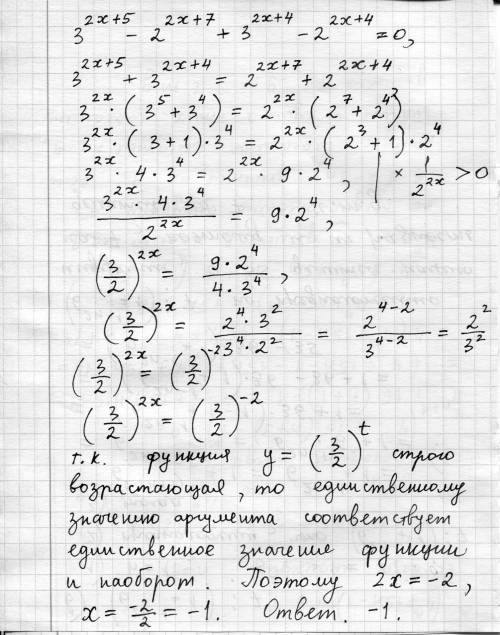 3^{2x+5} - 2^{2x+7} + 3^{2x+4} - 2^{2x+4} = 0,
3^{2x+5} + 3^{2x+4} = 2^{2x+7} + 2^{2x+4}
3^{2x} · (3^5 + 3^4) = 2^{2x} · (2^7 + 2^4)
3^{2x} · (3+1) · 3^4 = 2^{2x} · (2^3 + 1) · 2^4
3^{2x} · 4 · 3^4 = 2^{2x} · 9 · 2^4, | × \frac{1}{2^{2x}} > 0
\frac{3^{2x} · 4 · 3^4}{2^{2x}} = 9 · 2^4,
(\frac{3}{2})^{2x} = \frac{9 · 2^4}{4 · 3^4},
(\frac{3}{2})^{2x} = \frac{2^4 · 3^2}{3^4 · 2^2} = \frac{2^{4-2}}{3^{4-2}} = \frac{2^2}{3^2}
(\frac{3}{2})^{2x} = (\frac{3}{2})^{-2}
(\frac{3}{2})^{2x} = (\frac{3}{2})^{-2}
т.к. функция y = (\frac{3}{2})^t строго
возрастающая, то единственному
значению аргумента соответствует
единственное значение функции
и наоборот. Поэтому 2x = -2,
x = \frac{-2}{2} = -1. Ответ. -1.